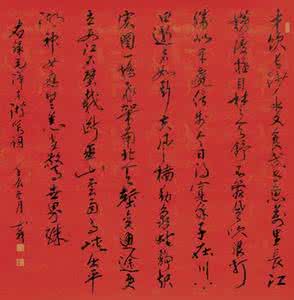 才饮长沙水又食武昌鱼万里长江
横渡极目楚天舒不管风吹浪打
胜似闲庭信步今日得宽余子在川上
曰逝者如斯夫风樯动龟蛇静起
宏图一桥飞架南北天堑变通途更
立西江石壁截断巫山云雨高峡出平
湖神女应无恙当惊世界殊
右录毛泽东游泳词